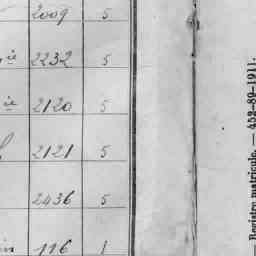 2009 5
ie 2232 5
ie 2120 5
2121 5
2436 5
in 116 1
— Registro matricule. — 452-89-1911.